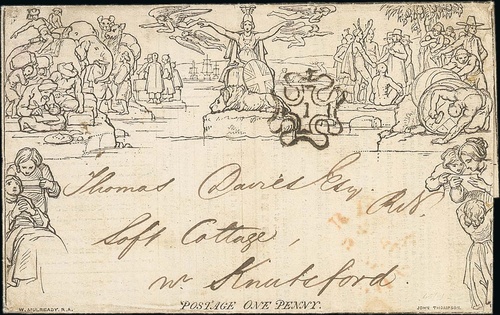 1
Thomas Davies Esq. R.N.
Soft Cottage,
Nr. Knutsford.
POSTAGE ONE PENNY.
W. MULREADY. R.A.
JOHN THOMPSON.